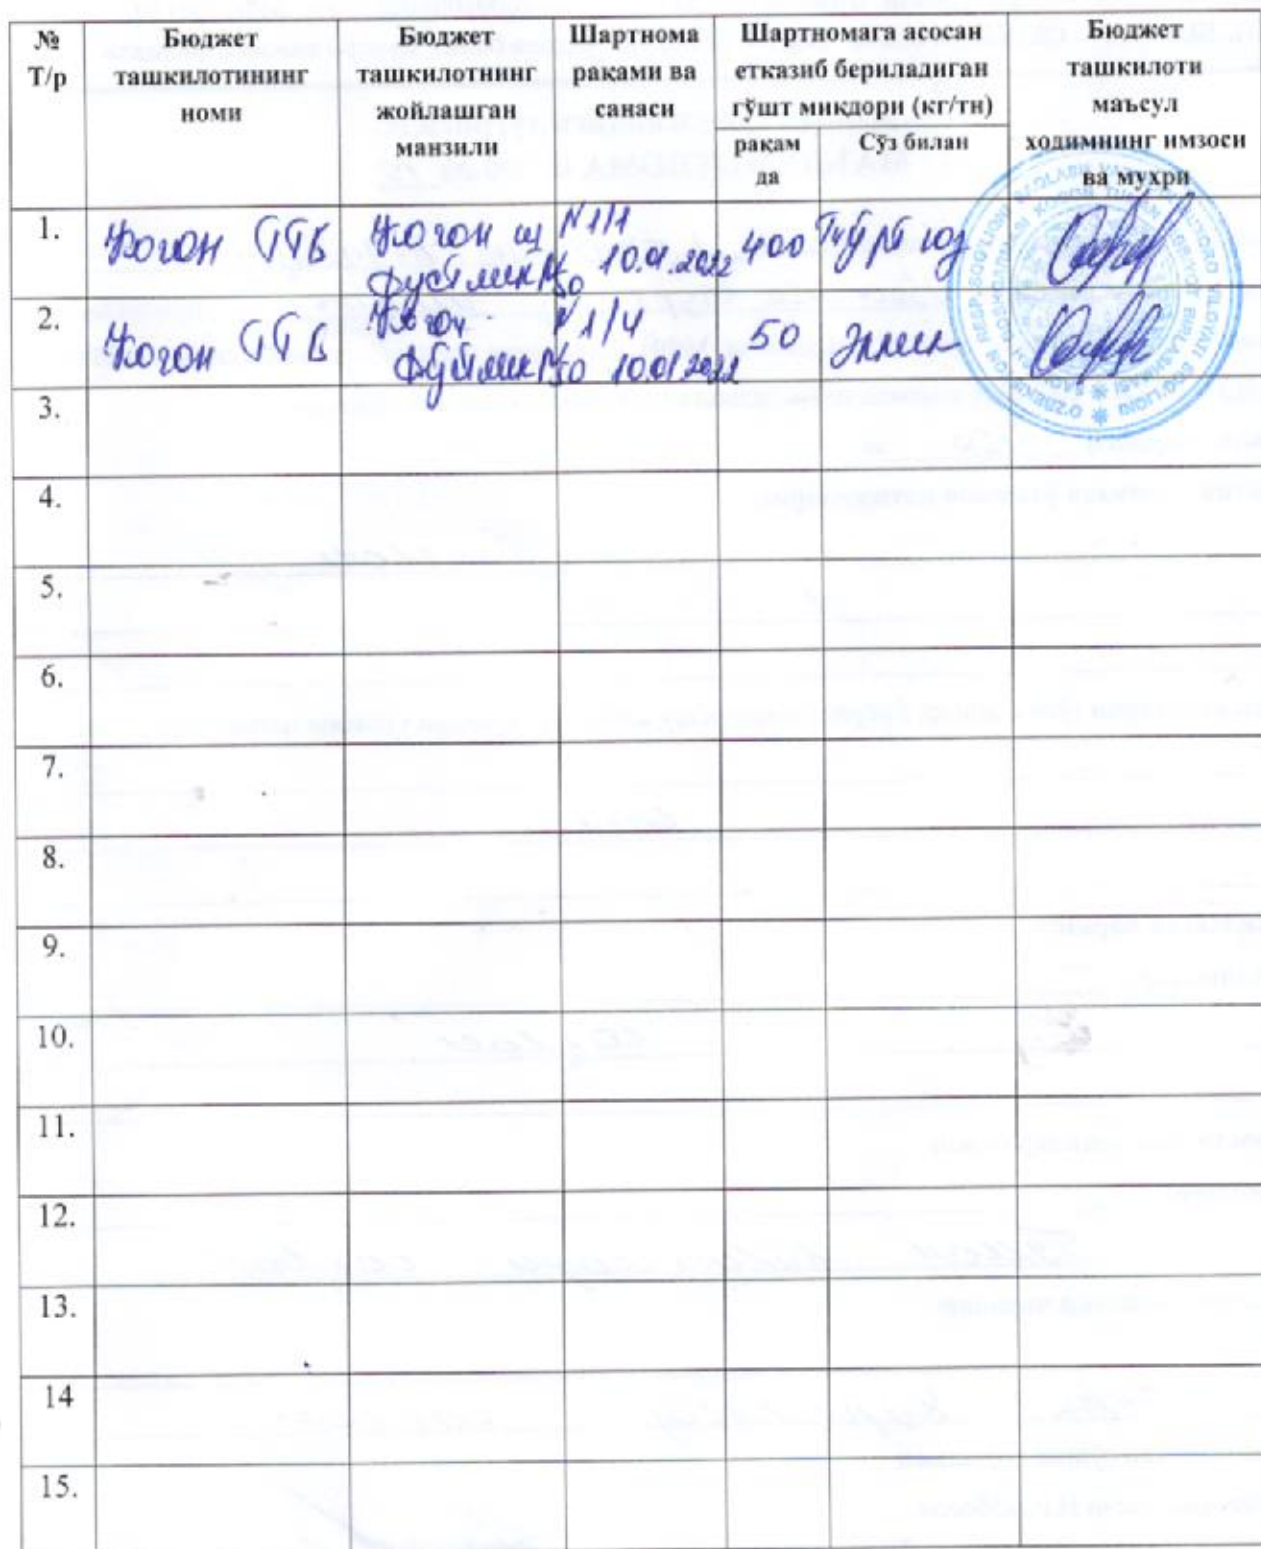 № Т/р
Бюджет ташкилотининг номи
Бюджет ташкилотнинг жойлашган манзили
Шартнома рақами ва санаси
Шартномага асосан етказиб бериладиган гўшт миқдори (кг/тн)
рақам да
Сўз билан
Бюджет ташкилоти маъсул ходимнинг имзоси ва мухри
1.
Когон ТТБ
Когон ш
Дустлик
N 1/1
10.01.2022
400
Тўрт юз
2.
Когон ТТБ
Когон
Дўстлик
N 1/4
10.01.2022
50
Эллик
3.
4.
5.
6.
7.
8.
9.
10.
11.
12.
13.
14
15.